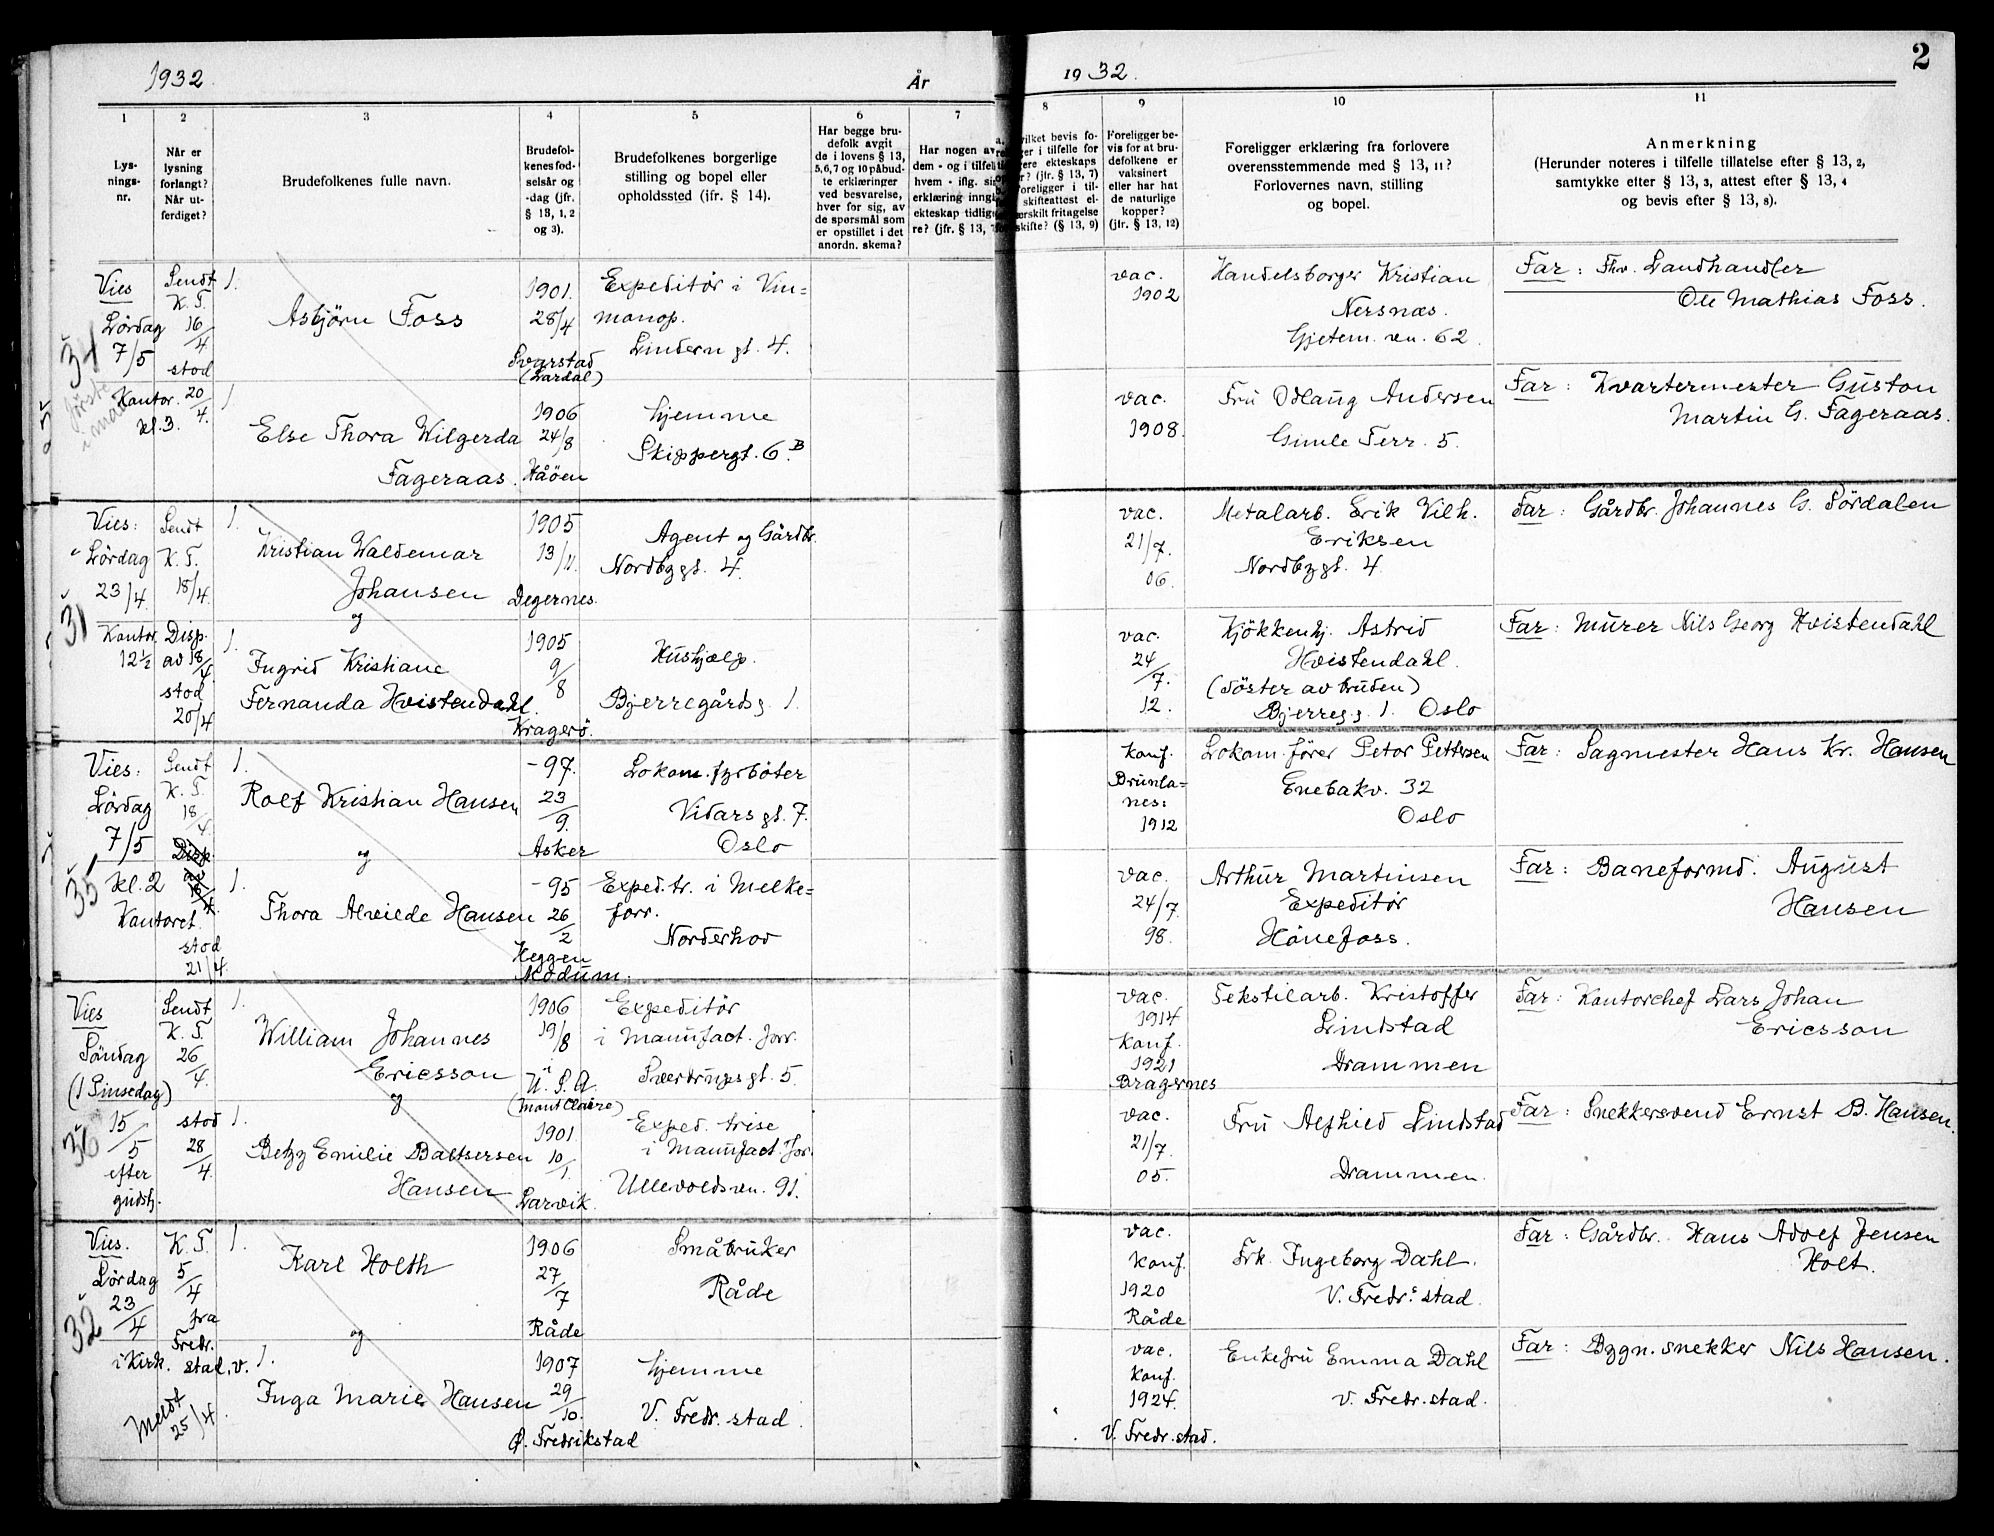 1932.
År
1932.
2
1
2
3
4
5
6
7
8
9
10
11
Lys-
nings-
nr.
Når er
lysning
forlangt?
Når ut-
ferdiget?
Brudefolkenes fulle navn.
Brudefol-
kenes fød-
selsår og
-dag (jfr.
§ 13, 1, 2
og 3).
Brudefolkenes borgerlige
stilling og bopel eller
opholdssted (jfr. § 14).
Har begge bru-
defolk avgit
de i lovens § 13,
5,6,7 og 10 påbud-
te erklæringer
ved besvarelse,
hver for sig, av
de spørsmål som
er opstillet i det
anordn. skema?
Har nogen av
dem - og i tilfelle
hvem - iflg. sig
erklæring inngå
ekteskap tidlige
re? (jfr. § 13, 7
vilket bevis fo-
ger i tilfelle for
ere ekteskaps
r? (jfr. § 13, 7)
oreligger i til-
skifteattest el-
ærskilt fritagelse
skifte? (§ 13, 9)
Foreligger be-
vis for at bru-
defolkene er
vaksinert
eller har hat
de naturlige
kopper?
(jfr. § 13, 12)
Foreligger erklæring fra forlovere
overensstemmende med § 13, 11?
Forlovernes navn, stilling
og bopel.
Anmerkning
(Herunder noteres i tilfelle tillatelse efter § 13, 2,
samtykke efter § 13, 3, attest efter § 13, 4
og bevis efter § 13, 8).
34
Vies
Lördag
7/5
Kantor.
kl. 3.
første
i mai
Sendt
K.T.
16/4
stod
20/4.
1.
Asbjörn Foss
1901.
28/4
Svarstad
(Lardal)
Expeditör i Vin=
monop.
Lindern gt. 4.
vac.
1902
Handelsborger Kristian
Nersnæs.
Gjetem. vn. 62.
Far: Fhv. Landhandler
Ole Mathias Foss.
1
Else Thora Wilgerda
Fageraas.
1906
24/8
Håöen
hjemme
Skippergt. 6 B.
vac.
1908.
Fru Odlaug Andersen
Gimle Terr. 5.
Far: Kvartermester Guston
Martin G. Fageraas.
31
Vies:
Lördag
23/4.
Kantor.
12½
Sendt
K.T.
18/4.
Disp.
av 18/4
stod
20/4
1.
Kristian Waldemar
Johansen
og
1905
13/11.
Degernes.
Agent og Gårdbr.
Nordbygt. 4.
vac.
21/7.
06.
Metalarb. Erik Vilh.
Eriksen
Nordbygt. 4.
Far: Gårdbr. Johannes G. Sördalen
1.
Ingrid Kristiane
Fernanda Hvistendahl.
1905
9/8
Kragerö.
Hushjælp.
Bjerregårdsg. 1.
vac.
24/7.
12.
Kjökkenhj. Astrid
Hvistendahl.
(söster av bruden)
Bjerregg. 1. Oslo
Far: Murer Nils Georg Hvistendahl
35
Vies:
Lördag
7/5
kl. 2
Kantoret.
Sendt
K.T.
18/4.
Disp.
av
18/4.
stod
21/4.
1.
Rolf Kristian Hansen
og
-97.
23/9.
Asker
Lokom. fyrböter
Vidars gt. 7.
Oslo
konf.
Brunla-
nes:
1912
Lokom. förer Peter Pettersen
Enebakv. 32
Oslo
Far: Sagmester Hans Kr. Hansen
1.
Thora Alvilde Hansen
-95
26/2
Heggen
Modum.
Exped.tr. i Melke=
forr.
Norderhov
vac.
24/7.
98.
Arthur Martinsen
Expeditör
Hönefoss.
Far: Baneformd. August
Hansen
36
Vies
Söndag
(1 Pinsedag)
15/5
efter
gudstj.
Sendt
K.T.
26/4.
stod
28/4.
1.
William Johannes
Ericsson
og
1906
19/8
i
U.S.A.
(Mont Claire)
Expeditör
i Manufact. forr.
Sverdrups gt. 5.
vac.
1914
Konf.
1921
Bragernes
Tekstilarb. Kristoffer
Lindstad
Drammen
Far: Kontorchef Lars Johan
Ericsson
1.
Betzy Emilie Baltsersen
Hansen
1901.
10/1.
Larvik.
Exped. trise
i Manufact. for.
Ullevoldsvn. 91.
vac.
21/7.
05.
Fru Alfhild Lindstad
Drammen.
Far: Snekkersvend Ernst B. Hansen.
32
Vies.
Lördag
23/4
i Kirk.
Meldt
25/4.
K.T.
5/4
fra
Fredr.
stad, v.
1.
Karl Holth
og
1906
27/7
Råde
Småbruker
Råde
vac.
Konf.
1920
Råde
Frk. Ingeborg Dahl.
V. Fredr. stad.
Far: Gårdbr. Hans Adolf Jensen
Holt.
1.
Inga Marie Hansen
1907
29/10.
Ø. Fredrikstad
hjemme
V. Fredr. stad.
vac.
Konf.
1924.
V. Fredr. stad.
Enkefru Emma Dahl
V. Fredr. stad.
Far: Bygn. snekker Nils Hansen.